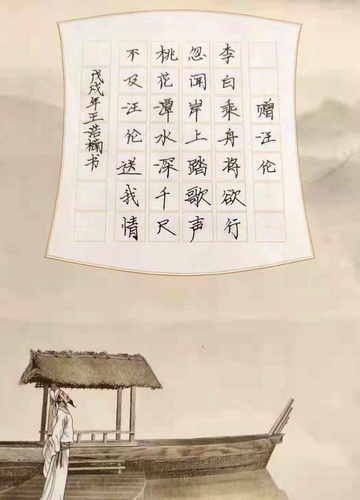 赠汪伦
李白乘舟将欲行
忽闻岸上踏歌声
桃花潭水深千尺
不及汪伦送我情
戊戌年王浩楠书